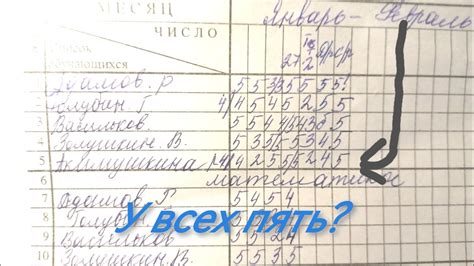 МЕСЯЦ Январь - Февраль
ЧИСЛО
27
Список
обучающихся
Адамов. Р 5 5 3 3 5 5 5 5!
2 Голубин Г 4/ 4 5 4 5 2 5 5
3 Васильков. 5 5 4 4 5 4 3 5 5
4 Золушкин. В. 5 3 5 5 5 3 4 5
5 Аквимушкина 4 2 5 5 5 2 4 5
6 математика
7 Адамов Р 5 4 5 4
8 Голубин
У всех пять?
9 Васильков 5 5 2 4
10 Золушкин. В. 5 5 3 5